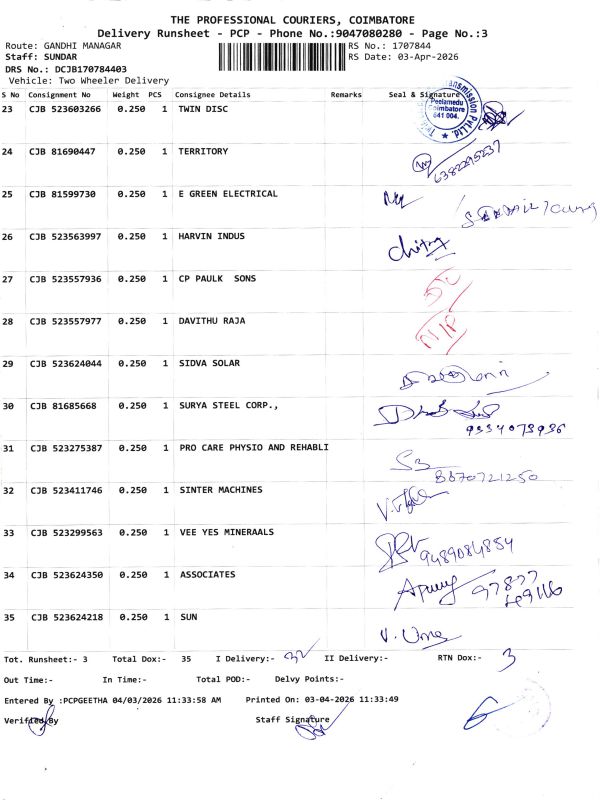 THE PROFESSIONAL COURIERS, COIMBATORE
Delivery Runsheet - PCP - Phone No.:9047080280 - Page No.:3
Route: GANDHI MANAGAR RS No.: 1707844
Staff: SUNDAR RS Date: 03-Apr-2026
DRS No.: DCJB170784403
Vehicle: Two Wheeler Delivery
S No Consignment No Weight PCS Consignee Details Remarks Seal & Signature
23 CJB 523603266 0.250 1 TWIN DISC
Peelamedu
Coimbatore
641 004.
24 CJB 81690447 0.250 1 TERRITORY
6382295237
25 CJB 81599730 0.250 1 E GREEN ELECTRICAL
26 CJB 523563997 0.250 1 HARVIN INDUS
chitra
27 CJB 523557936 0.250 1 CP PAULK SONS
28 CJB 523557977 0.250 1 DAVITHU RAJA
29 CJB 523624044 0.250 1 SIDVA SOLAR
30 CJB 81685668 0.250 1 SURYA STEEL CORP.,
31 CJB 523275387 0.250 1 PRO CARE PHYSIO AND REHABLI
8870721250
32 CJB 523411746 0.250 1 SINTER MACHINES
33 CJB 523299563 0.250 1 VEE YES MINERAALS
9489084854
34 CJB 523624350 0.250 1 ASSOCIATES
35 CJB 523624218 0.250 1 SUN
V. Uma
Tot. Runsheet:- 3 Total Dox:- 35 I Delivery:- 32 II Delivery:- RTN Dox:- 3
Out Time:- In Time:- Total POD:- Delvy Points:-
Entered By :PCPGEETHA 04/03/2026 11:33:58 AM Printed On: 03-04-2026 11:33:49
Verified By Staff Signature